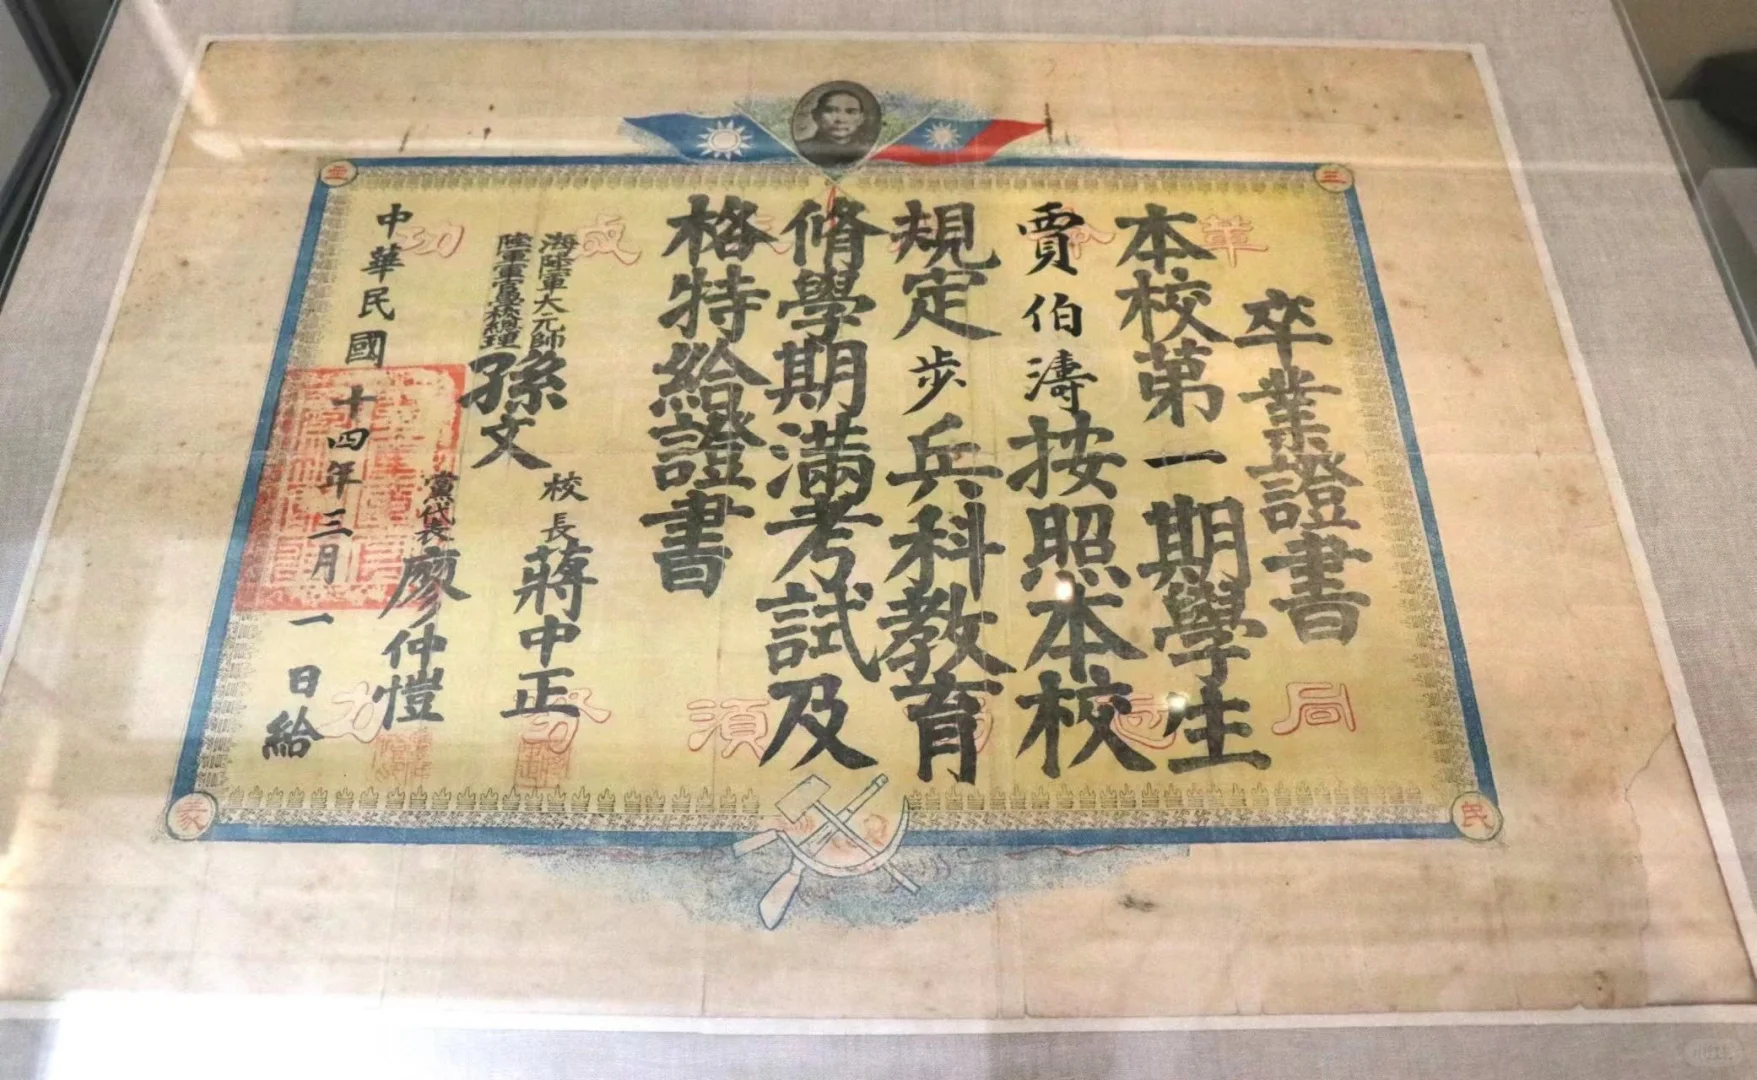 三民主義
革命成功
同志須努力
卒業證書
本校第一期學生
賈伯濤按照本校
規定步兵科教育
脩學期滿考試及
格特給證書
海陸軍大元帥
陸軍軍官學校總理
孫文
校長蔣中正
黨代表廖仲愷
中華民國十四年三月一日給